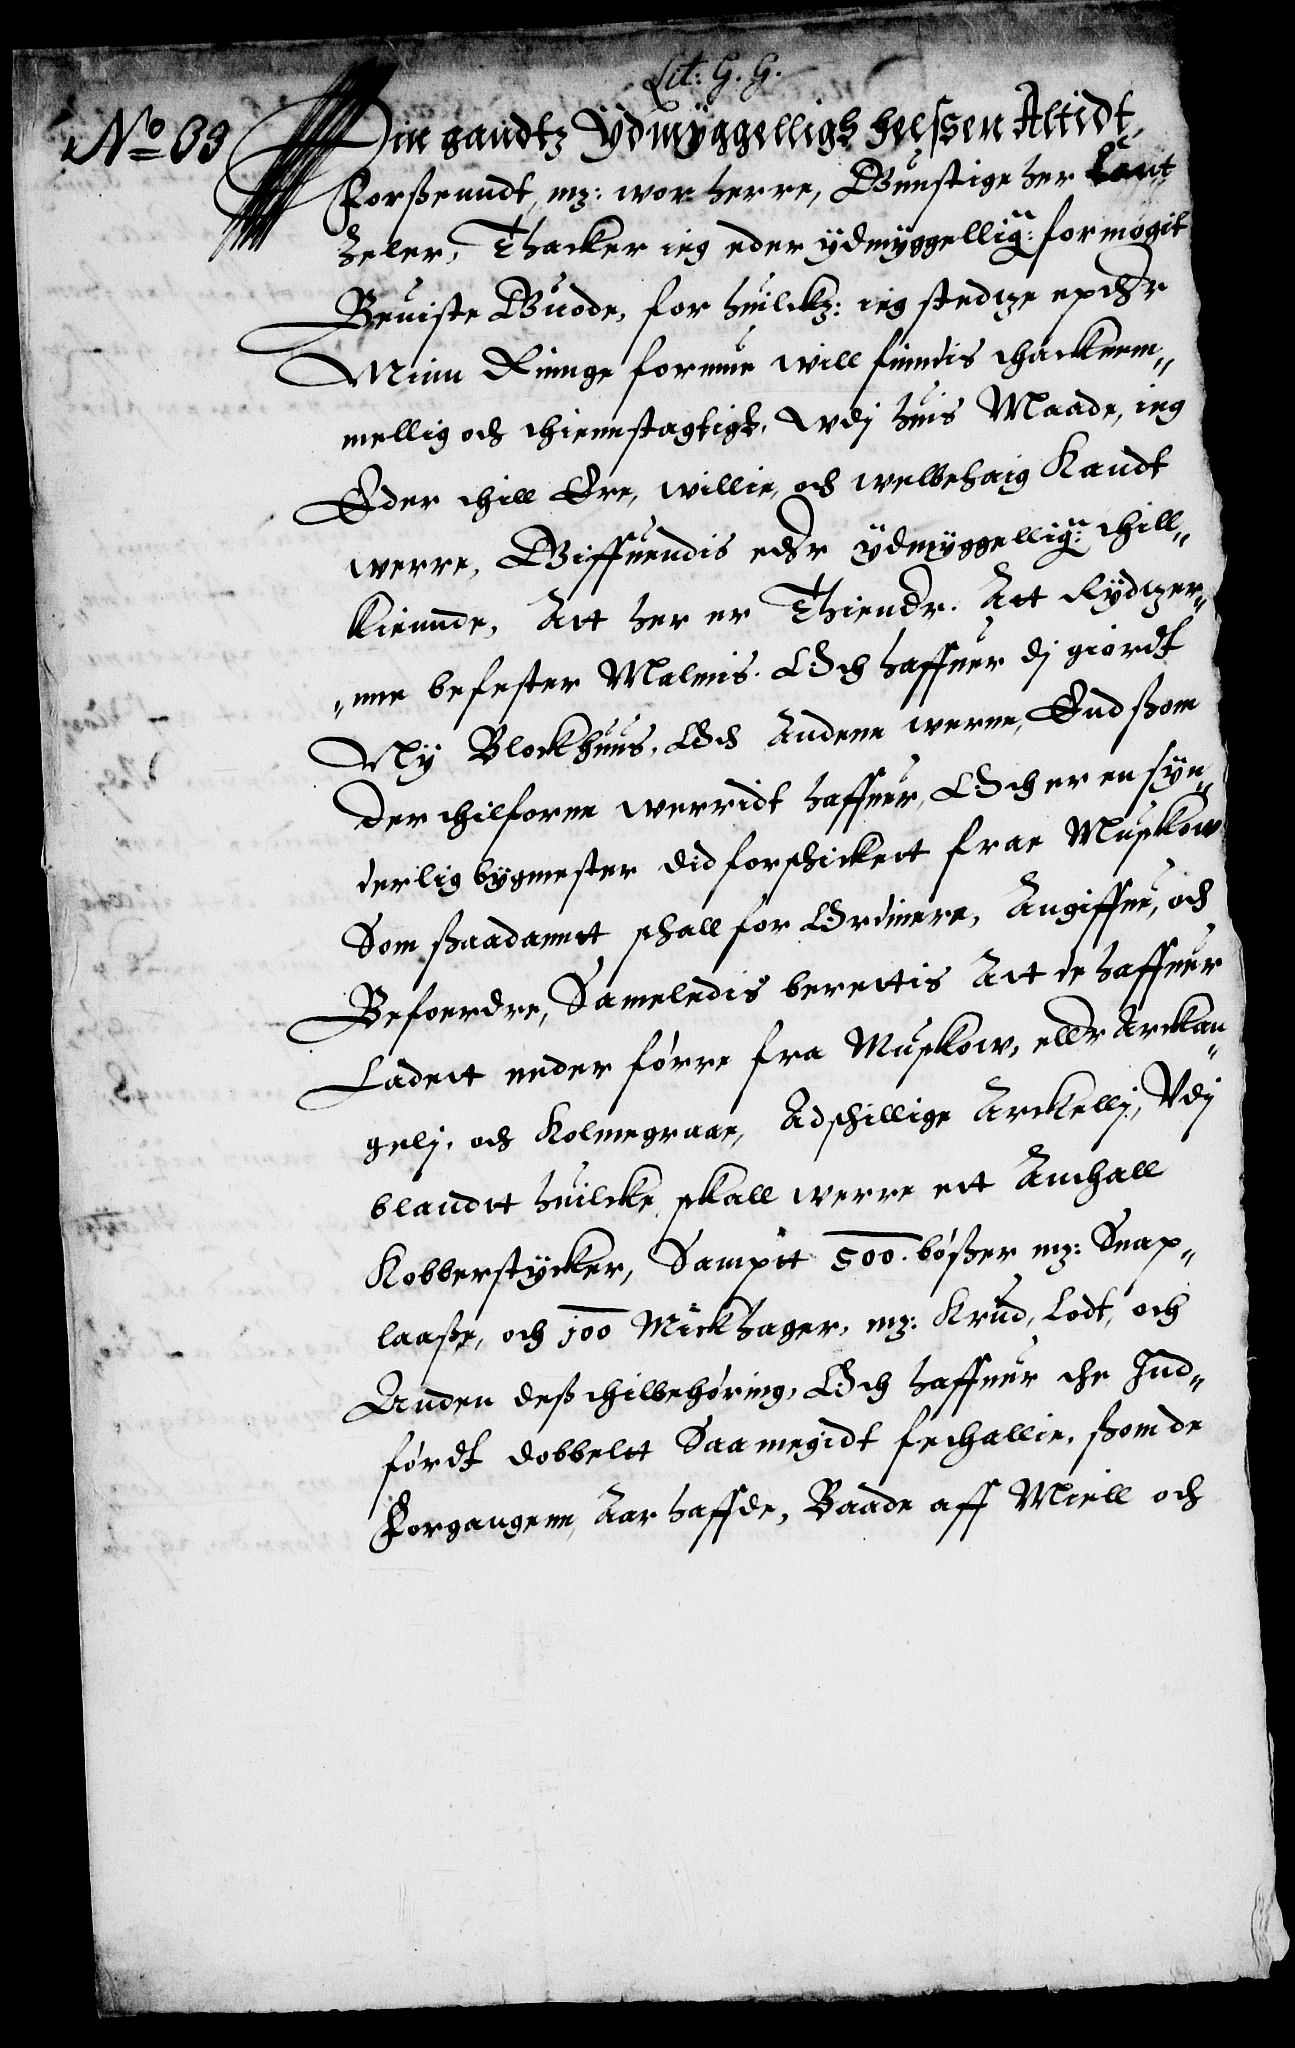 Lit: G. G.
No 39
Min gandtz Ydmyggelligh helssen Altidt,
Forßenndt, mz: wor herre, Gunstige her Cant
zeler, Thacker ieg eder ydmyggellig: for møgit
Beuiste Guode, for huilckz: ieg stedtze epther
Minn Ringe formue will findis thacknem„
mellig och thienstagtigh, Wdj huis Maade, ieg
Eder thill Ere, willie, och welbehaig Kandt
werre, Giffuendis eder ydmyggellig: thill„
kiennde, Att her er Thiender. Att Rydtzer„
„nne befester Malmis. Och haffuer dj giordt
Ny Blockhuus, Och Andene werne, End ßom
der thilforne werridt haffuer, Och er en syn„
derlig bygmester did forschickett fraa Muskow
Som ßaadannt schall for Ordinere, Angiffue, och
Befoerdre, Sameledis berettis Att de haffuer
Ladett neder førre fra Muskow, eller Arckan„
gelj, och Kolmegraae, Adschillige Arckellj, Vdj
blandtt huilcke skall werre ett Anthall
Kobberstycker, Sampt 500. bøßer mz: Snap„
laaße, och 100 Mickhager, mz: Krud, Lodt, och
Anden deß thilbehøring, Och haffuer the Ind„
førdt dobbelt Saa megidt fethallie, ßom de
Forgangenn Aar haffde, Baade aff Miell och